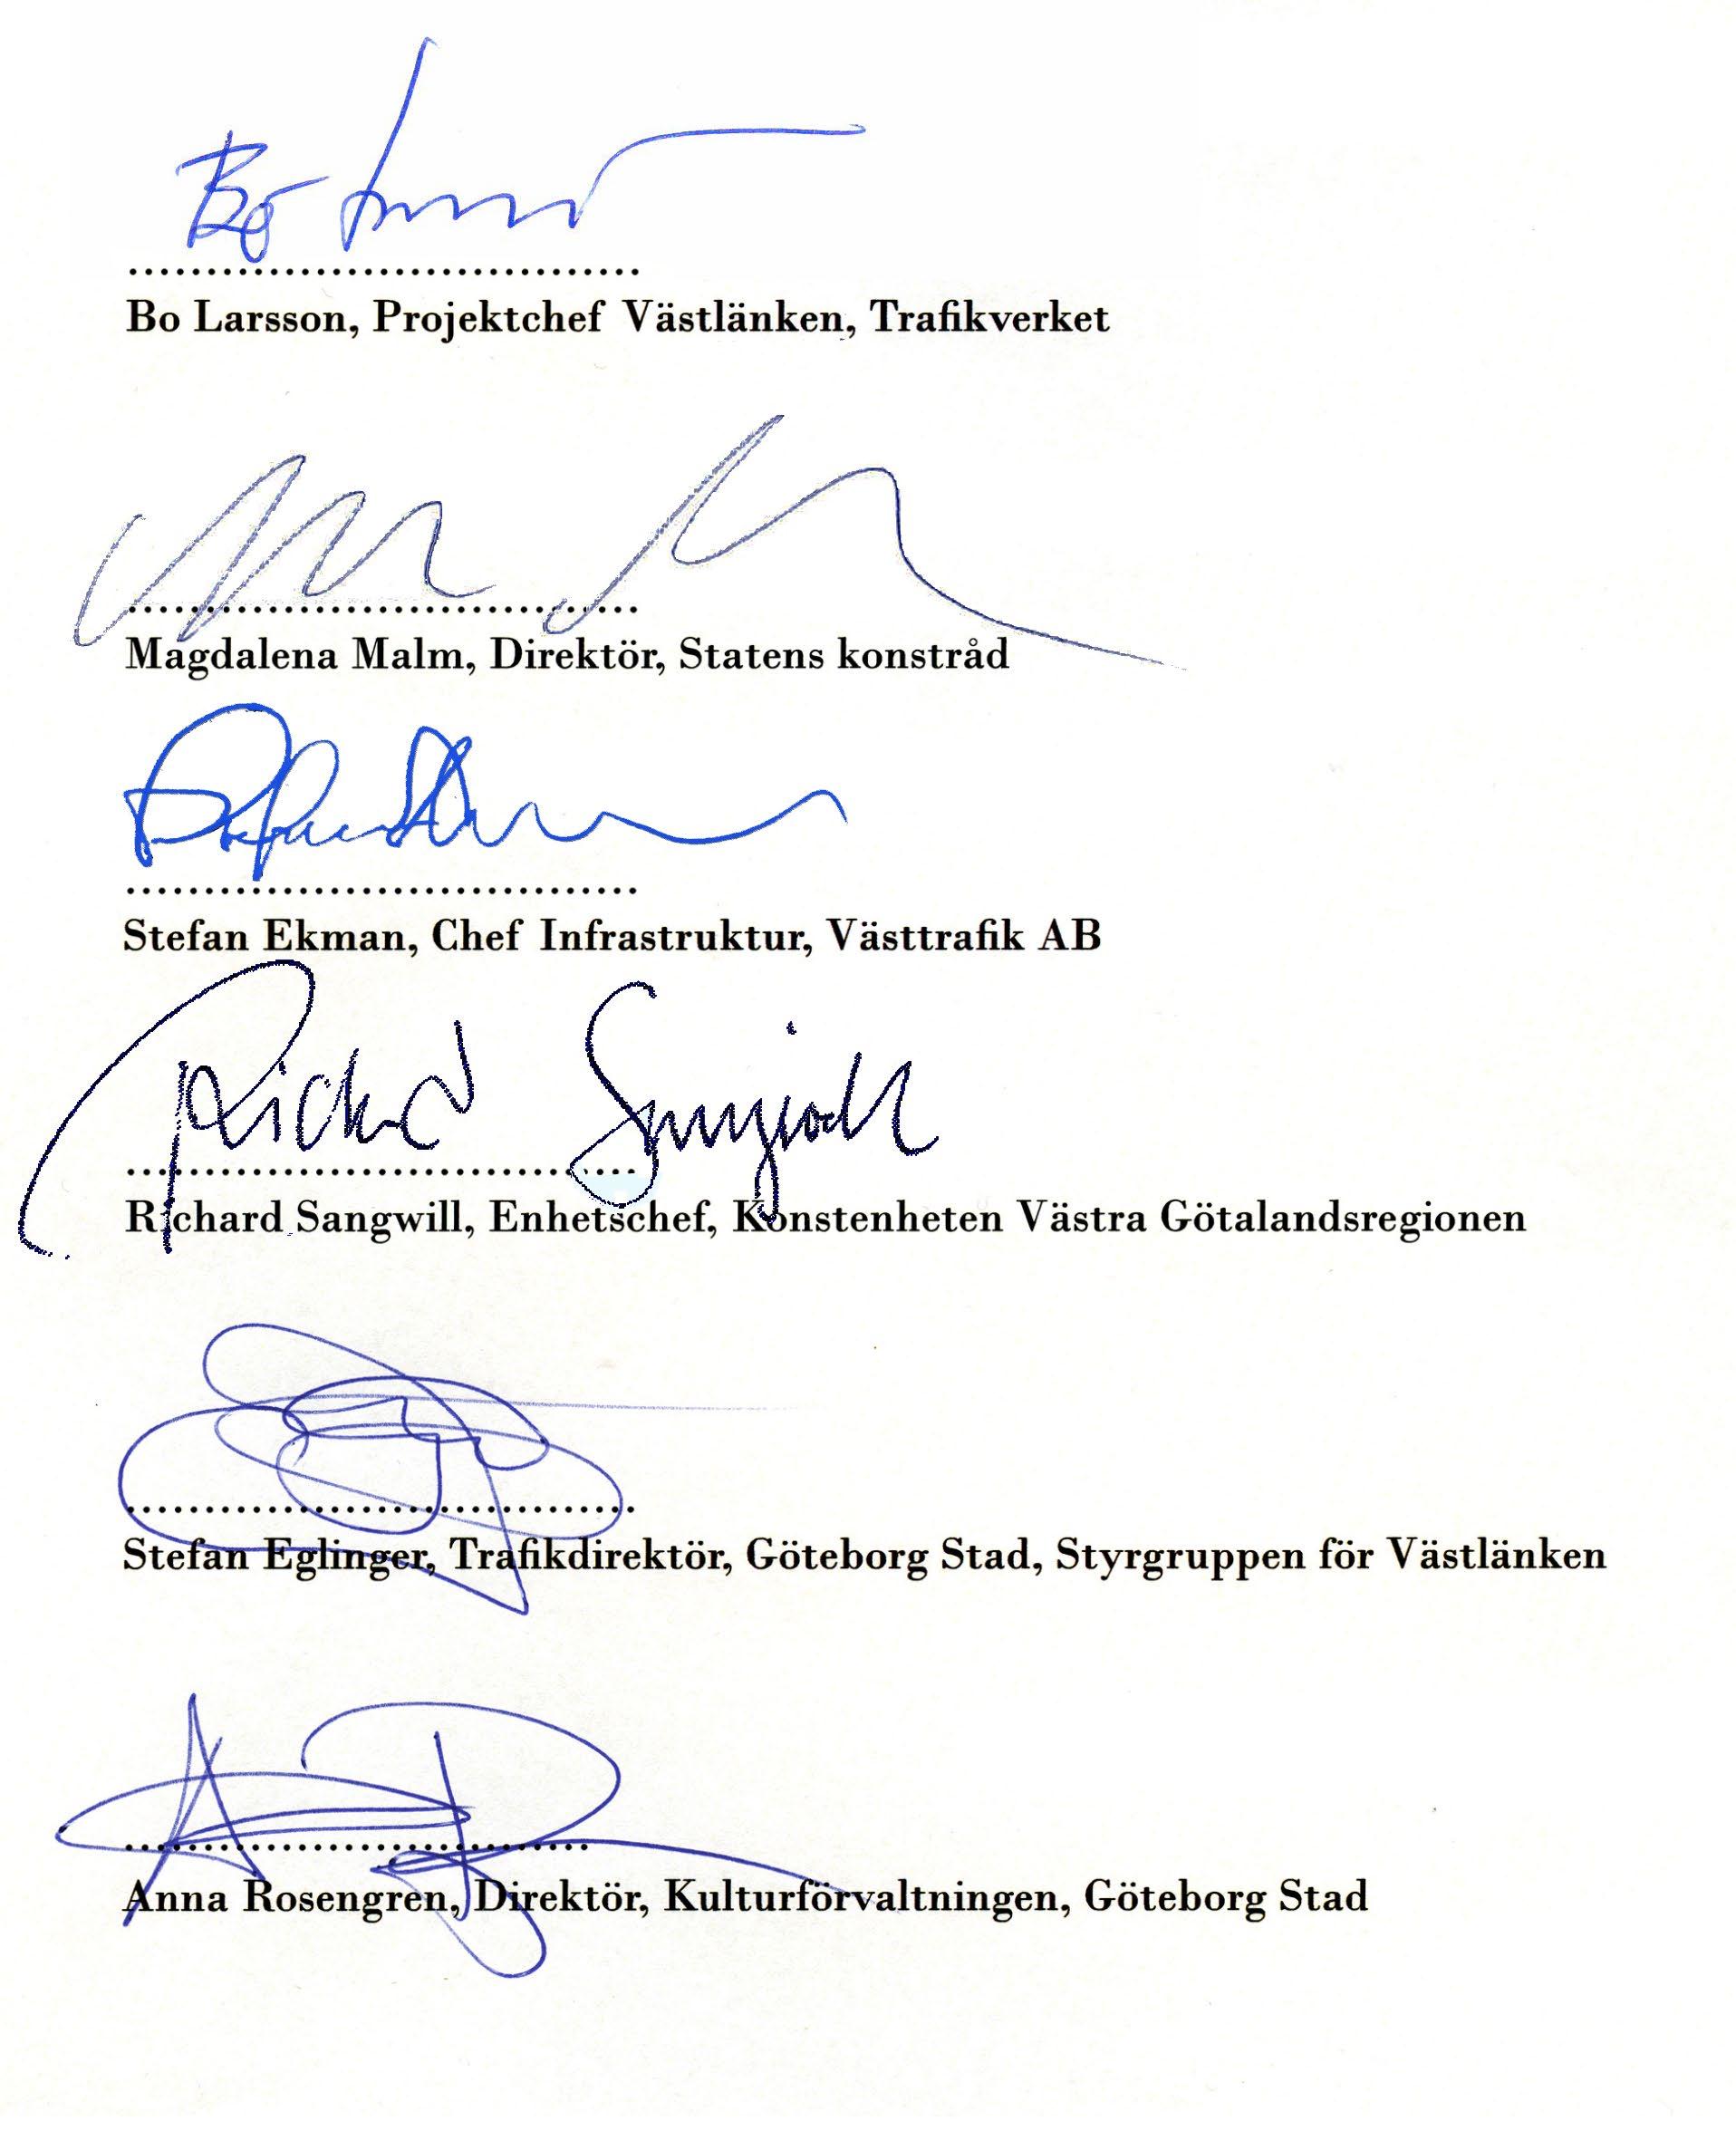 Bo
.................................
Bo Larsson, Projektchef Västlänken, Trafikverket
.................................
Magdalena Malm, Direktör, Statens konstråd
.................................
Stefan Ekman, Chef Infrastruktur, Västtrafik AB
Richard Sangwill
.................................
Richard Sangwill, Enhetschef, Konstenheten Västra Götalandsregionen
.................................
Stefan Eglinger, Trafikdirektör, Göteborg Stad, Styrgruppen för Västlänken
..............................
Anna Rosengren, Direktör, Kulturförvaltningen, Göteborg Stad